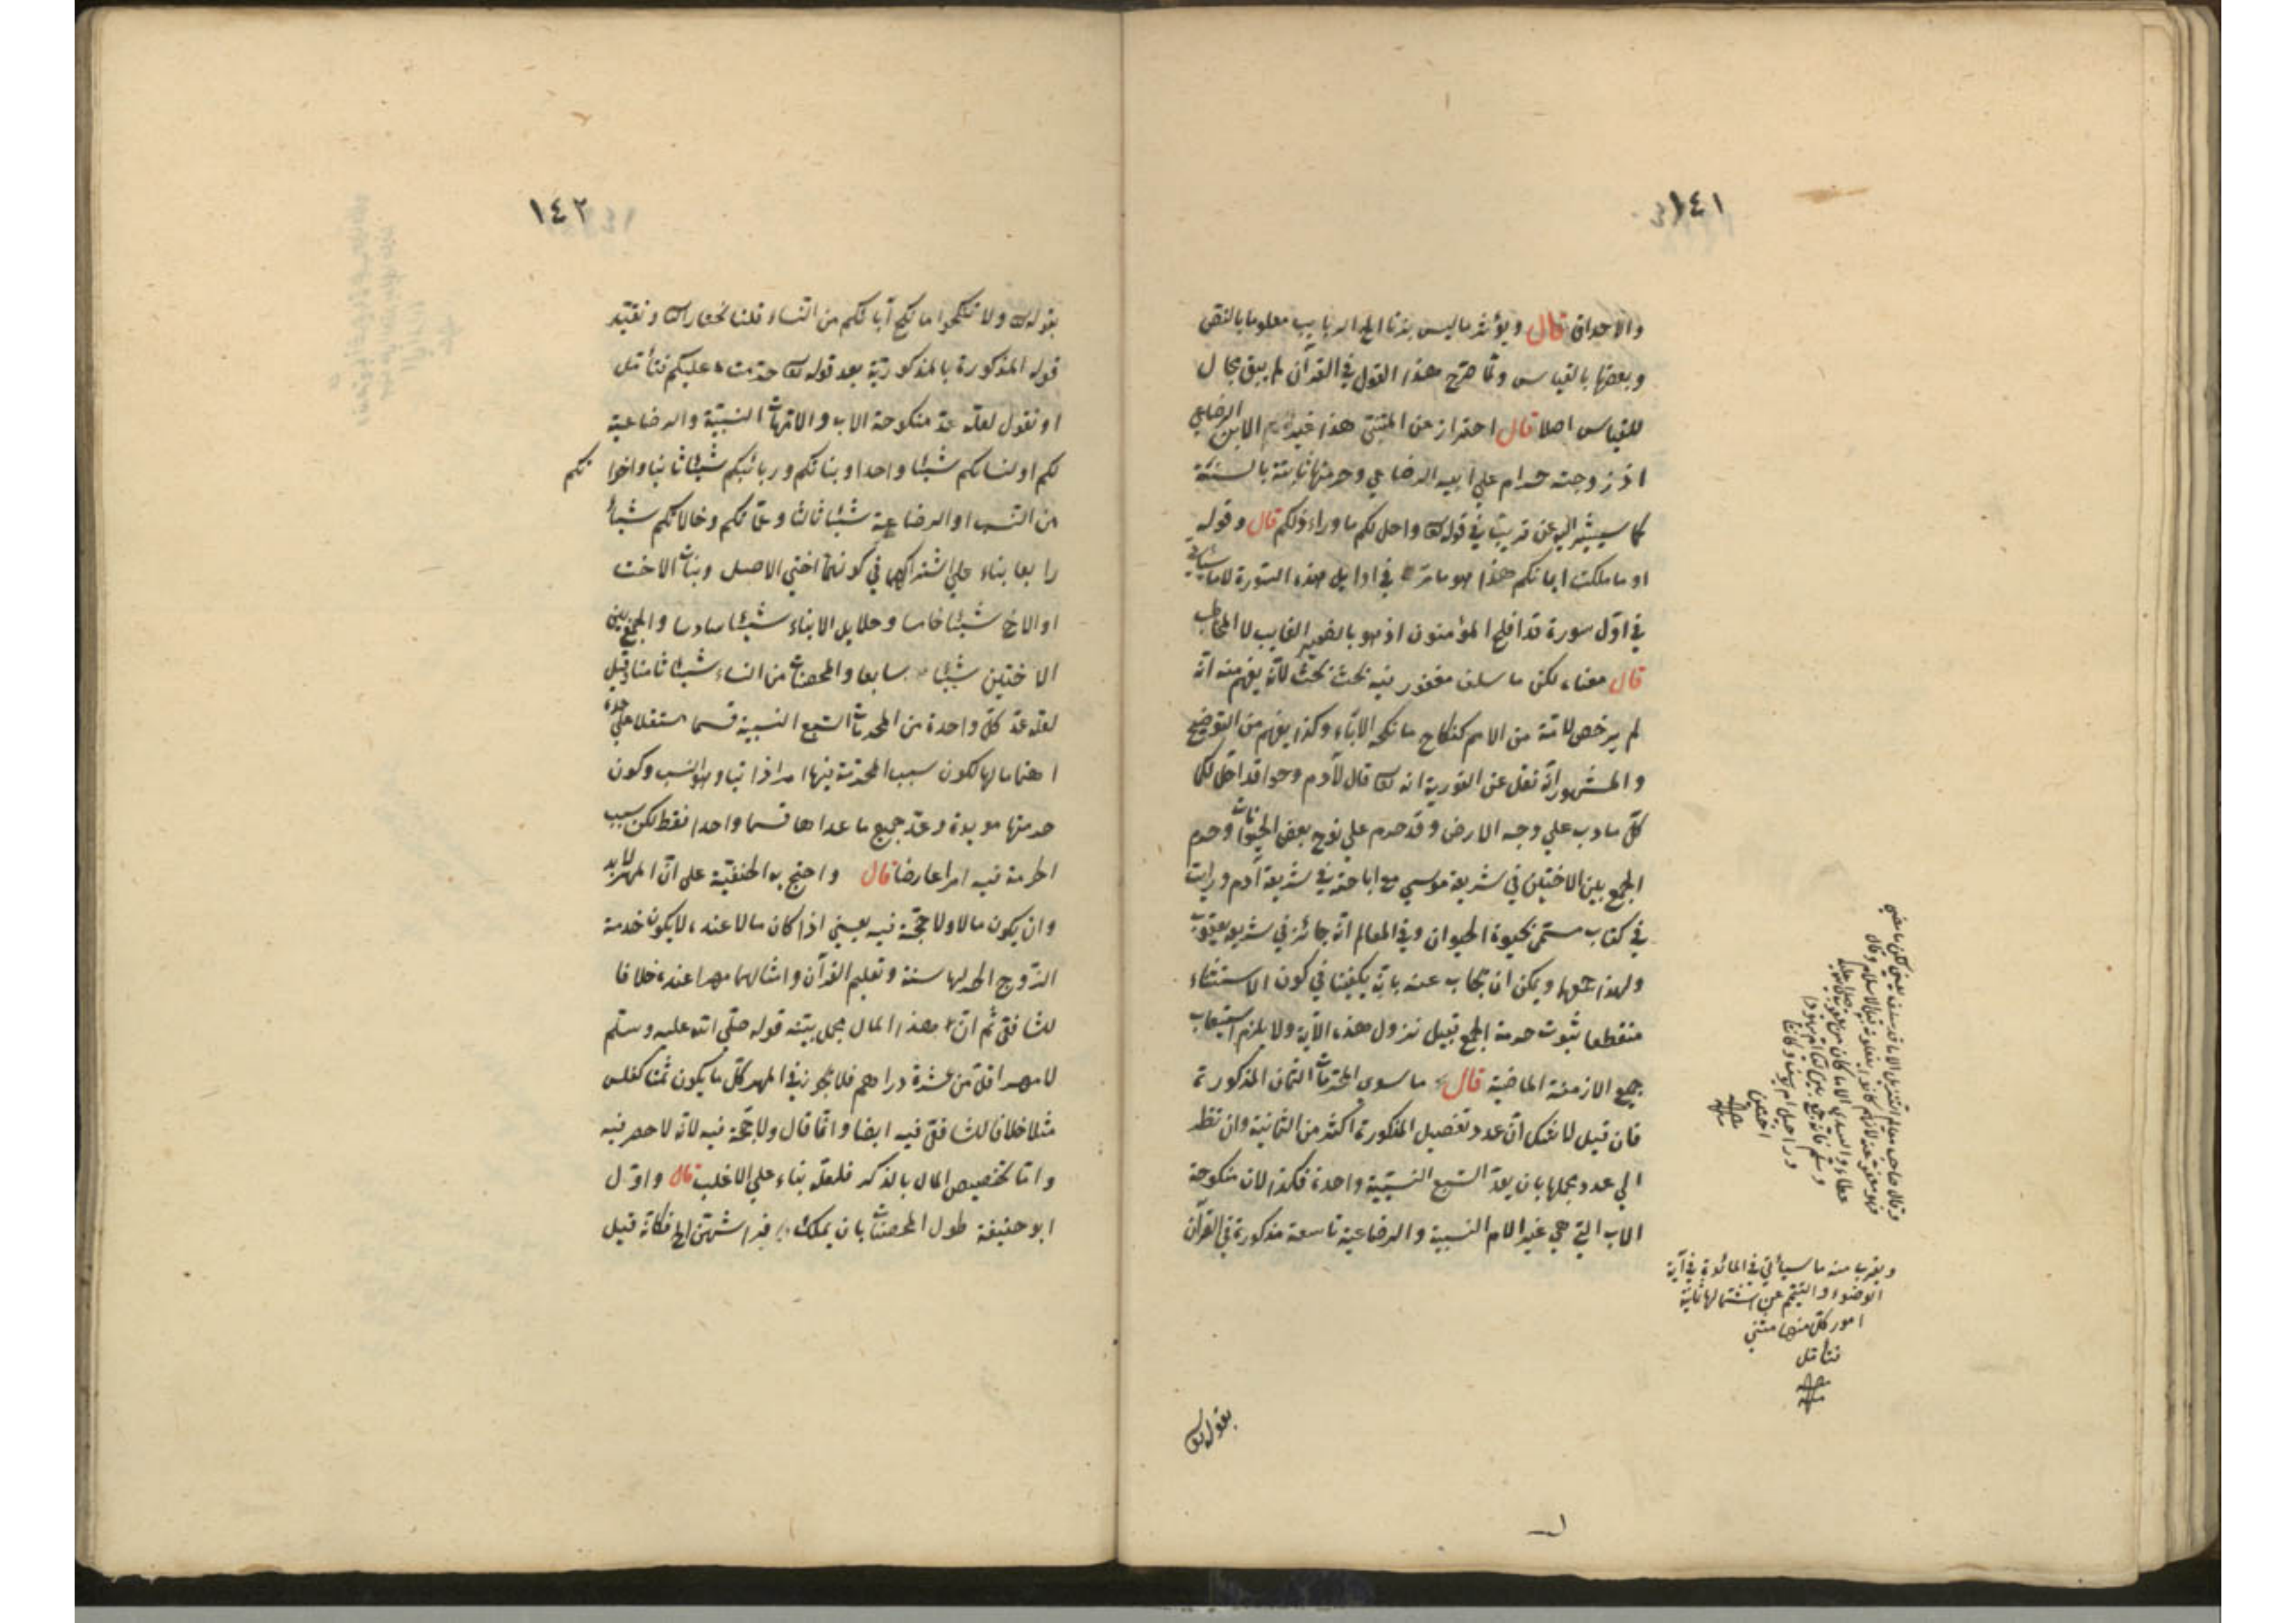 ١٤١
والاحداق قال ويؤثر ما ليس بذتا الخ الربايب معلوما بالنص
وبعضها بالقياس ولما صرح هذا القول في القرآن لم يبق مجال
للقياس اصلا قال احتراز عن المتبنى هذا الابن الرضاعي
اذ زوجته حرام علي ابيه الرضاعي وحرمتها ثابتة بالسنة
كما سيشير اليه عن قريب في قوله تع واحل لكم ما وراء ذلكم قال وقوله
او ما ملكت ايمانكم هذا هو ما مر في اوايل هذه السورة لا ما سيأتي
في اول سورة قد افلح المؤمنون اذ هو بالضمير الغايب لا المخاطب
قال معناه لكن ما سلف مغفور فيه بحث بحث لانه يفهم منه انه
لم يرخص لامة من الامم كنكاح ما نكحه الاباء وكذا يفهم من التوضيح
والمشهور انه نقل عن التورية انه تع قال لآدم وحوا قد احل لكما
كل ما دب علي وجه الارض وقد حرم علي نوح بعض الحيوانات وحرم
الجمع بين الاختين في شريعة موسي مع اباحته في شريعة آدم ورايت
في كتاب مسمى بحيوة الحيوان وفي المعالم انه جائز في شريعة يعقوب
ولهذا جمعها ويمكن ان يجاب عنه بانه يكفينا في كون الاستثناء
منقطعا ثبوت حرمة الجمع قبيل نزول هذه الآية ولا يلزم استيعاب
جميع الازمنة الماضية قال ما سوي المحرمات الثمان المذكورة
فان قيل لا شك ان عدد تفصيل المذكورة اكثر من الثمانية وان نظر
الي عدد مجملها بان يعد السبع النسبية واحدة فكذا لان منكوحة
الاب التي هي غير الام النسبية والرضاعية تاسعة مذكورة في القرآن
بقوله تع
وقال صاحب معالم التنزيل الا ما قد سلف يعني لكن ما مضي
فهو معفو عنه لانهم كانوا يفعلونه قبل الاسلام وقال
عطاء والسدي الا ما كان من يعقوب صلى الله عليه
وسلم فانه جمع بين ليا ام يهودا
وراحيل ام يوسف وكانتا
اختين
منه
ويقرب منه ما سيأتي في المائدة في آية
الوضوء والتيمم عن اشتمالها ثمانية
امور كل منها مثنى
فتأمل
منه
١٤٢
بقوله تع ولا تنكحوا ما نكح آباؤكم من النساء قلنا نختار تع ونقيد
قوله المذكورة بالمذكورية بعد قوله تع حرمت عليكم فتأمل
او نقول لعله عد منكوحة الاب والامهات النسبية والرضاعية
لكم او لنسائكم شيئا واحدا وبناتكم وربائبكم شيئا ثانيا واخواتكم
من النسب او الرضاعة شيئا ثالثا وعماتكم وخالاتكم شيئا
رابعا بناء علي اشتراكهما في كونهما اختي الاصل وبنات الاخت
او الاخ شيئا خامسا وحلايل الابناء شيئا سادسا والجمع بين
الاختين شيئا سابعا والمحصنات من النساء شيئا ثامنا وقيل
لعله عد كل واحدة من المحرمات السبع النسبية قسما مستقلا علي حدة
اهتماما لها لكون سبب المحرمية فيها امرا ذاتيا وهو النسب وكون
حرمتها مؤبدة وعد جميع ما عداها قسما واحدا فقط لكن سبب
الحرمة فيه امرا عارضا قال واحتج به الحنفية على ان المهر لابد
وان يكون مالا ولا حجة فيه يعني اذا كان مالا عنده لا يكون خدمة
الزوج الحر لها سنة وتعليم القرآن وامثالهما مهرا عنده خلافا
للشافعي ثم ان هذا المال مجمل بينه قوله صلي الله عليه وسلم
لا مهر اقل من عشرة دراهم فلا يجوز في المهر كل ما يكون ثمنا كفلس
مثلا خلافا للشافعي فيه ايضا وانما قال ولا حجة فيه لانه لا حصر فيه
واما تخصيص المال بالذكر فلعله بناء علي الاغلب قال واول
ابو حنيفة طول المحصنات بان يملك فراشهن الخ فكانه قيل